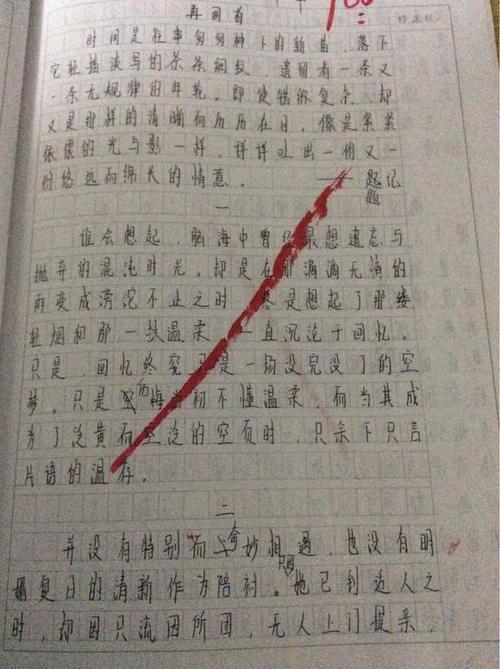 再回首
时间是往事匆匆种下的新苗，落下
它轻描淡写的条条细纹，遗留着一条又
一条无规律的年轮。即使错综复杂，却
又是那样的清晰而历历在目，像是紧紧
依偎的光与影一样，详详吐出一份又一
份悠远而绵长的情意。——题记
一
谁会想起，脑海中曾经最想遗忘与
抛弃的混沌时光，却是在那滴滴无情的
雨变成滂沱不止之时，终是想起了那缕
轻烟和那一抹温柔，一直沉沦于回忆。
只是，回忆终究只是一场没完没了的空
梦。只是后悔当初不懂温柔，而当其成
为了泛黄而空泛的空页时，只余下只言
片语的温存。
二
并没有特别而奇妙相遇，也没有明
媚夏日的清新作为陪衬。她已到适人之
时，却因只流因所困，无人上门提亲，